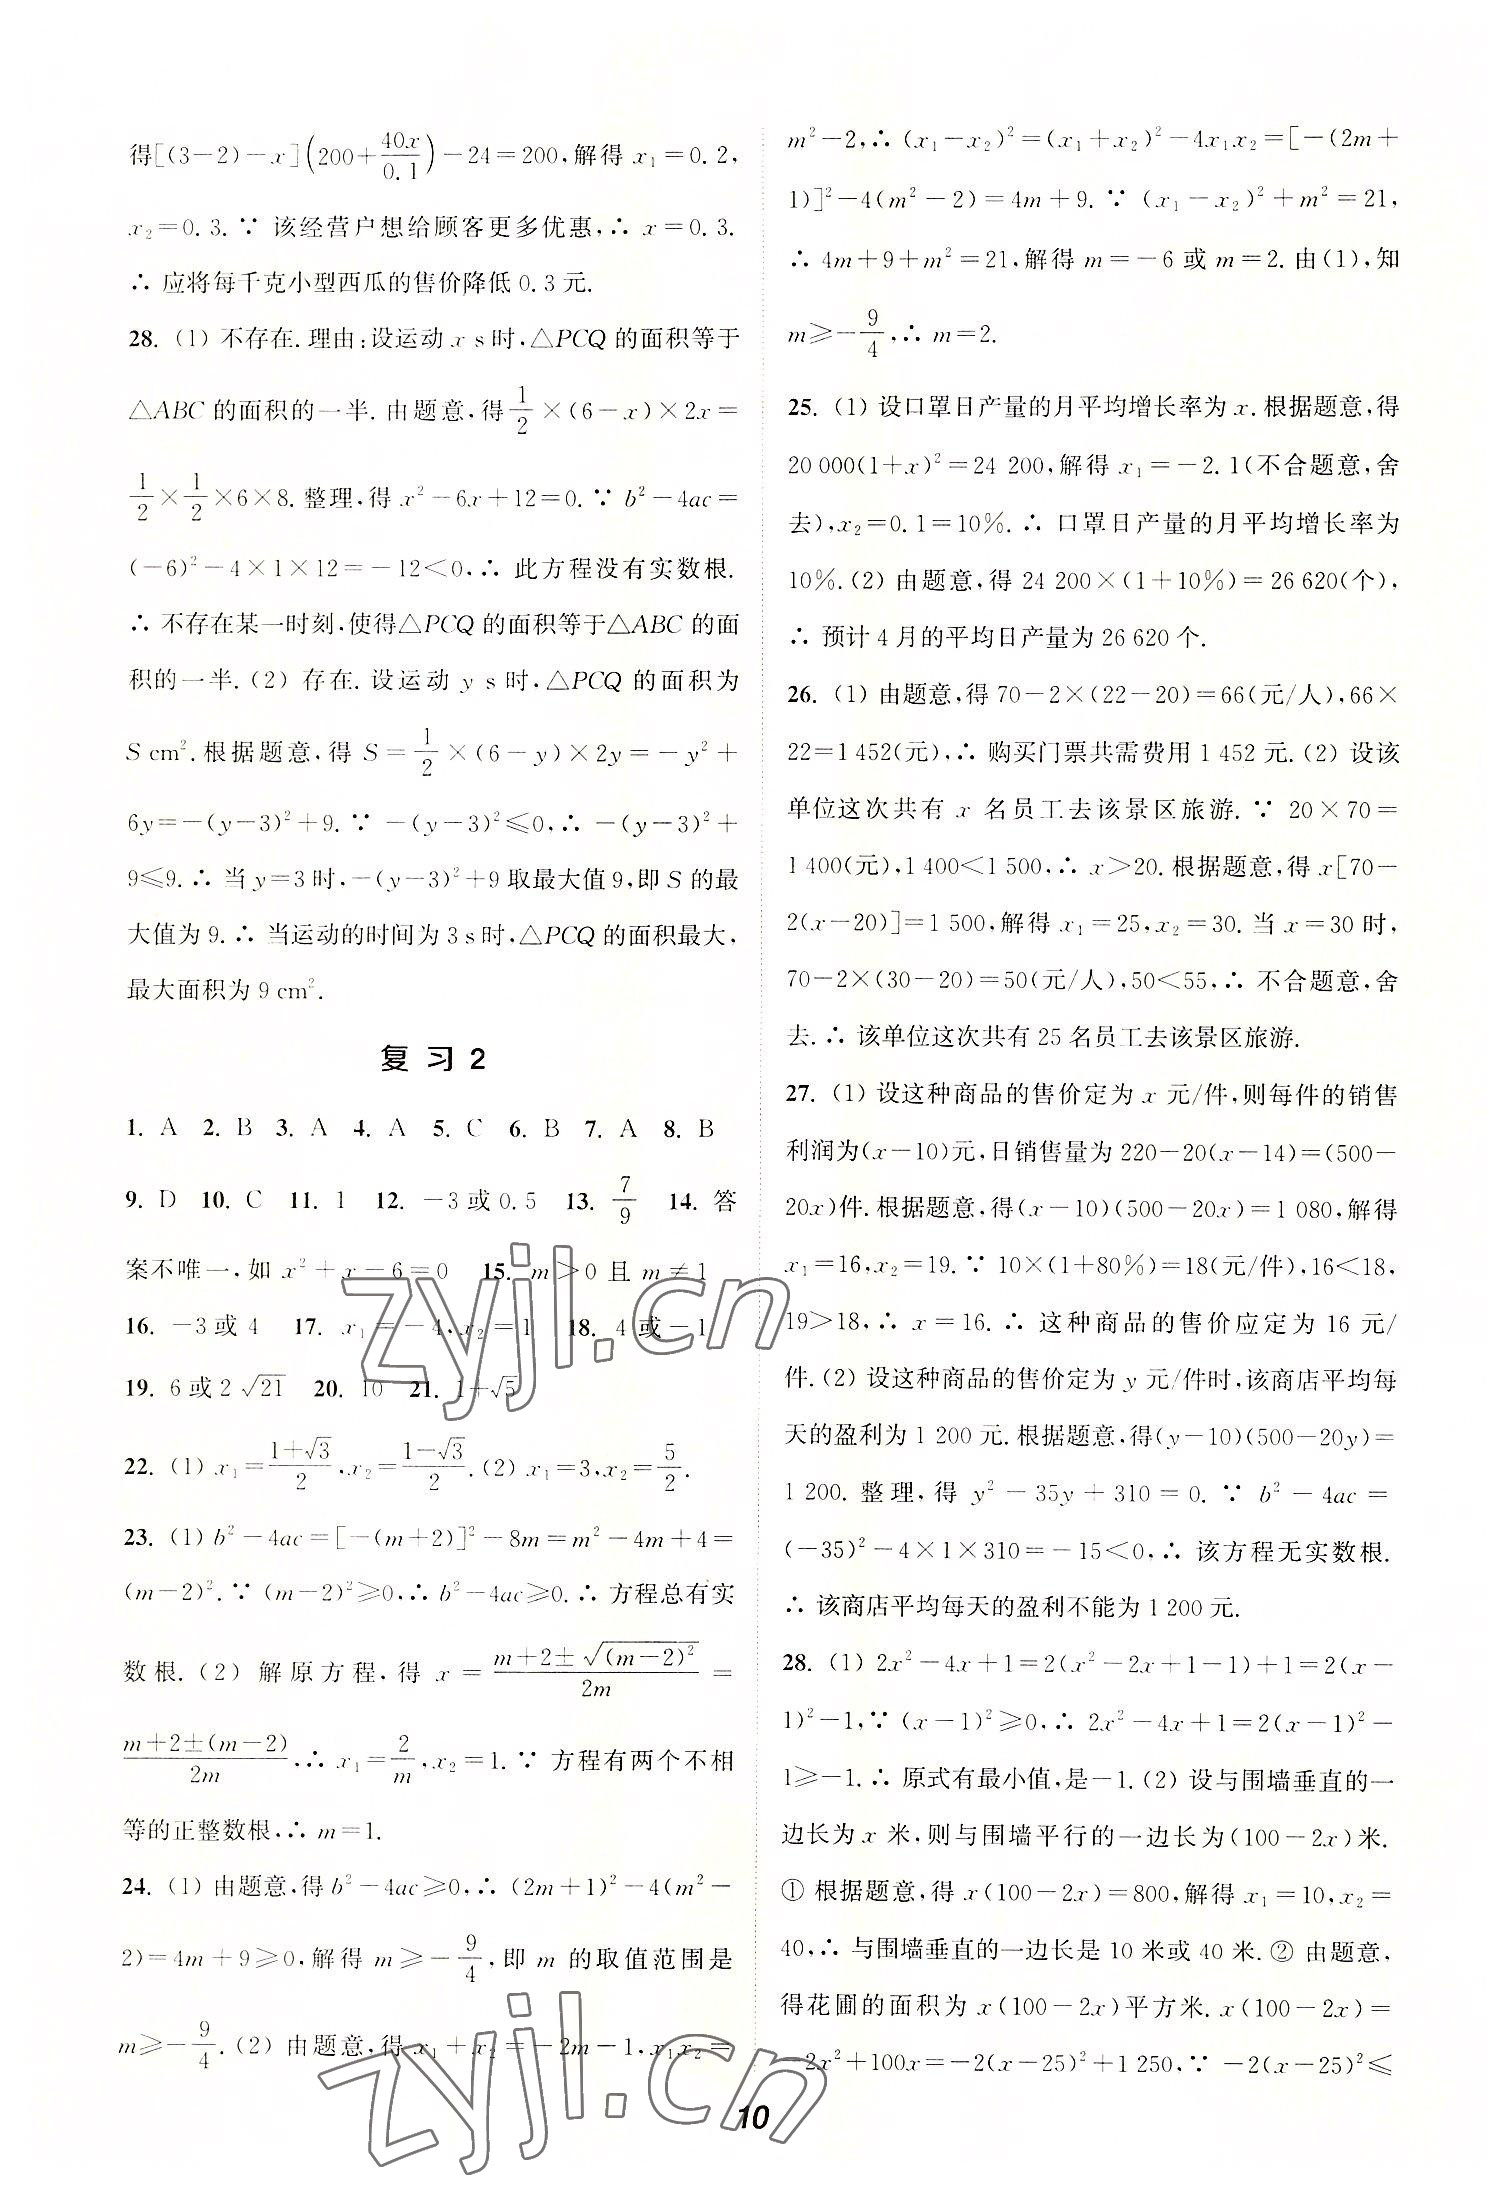 得[(3-2)-x](200+40x/0.1)-24=200,解得 x₁=0.2,
x₂=0.3.∵ 该经营户想给顾客更多优惠,∴ x=0.3.
∴ 应将每千克小型西瓜的售价降低 0.3 元.
28. (1) 不存在.理由:设运动 x s时,△PCQ 的面积等于
△ABC 的面积的一半. 由题意,得 1/2×(6-x)×2x=
1/2×1/2×6×8. 整理,得 x²-6x+12=0.∵ b²-4ac=
(-6)²-4×1×12=-12<0,∴ 此方程没有实数根.
∴ 不存在某一时刻,使得△PCQ 的面积等于△ABC 的面
积的一半.(2) 存在. 设运动 y s时,△PCQ 的面积为
S cm².根据题意,得 S=1/2×(6-y)×2y=-y²+
6y=-(y-3)²+9.∵ -(y-3)²≤0,∴ -(y-3)²+
9≤9.∴ 当 y=3 时,-(y-3)²+9 取最大值 9,即 S 的最
大值为 9.∴ 当运动的时间为 3 s时,△PCQ 的面积最大,
最大面积为 9 cm².
复 习 2
1. A 2. B 3. A 4. A 5. C 6. B 7. A 8. B
9. D 10. C 11. 1 12. -3 或 0.5 13. 7/9 14. 答
案不唯一,如 x²+x-6=0 15. m>0 且 m≠1
16. -3 或 4 17. x₁=-4,x₂=1 18. 4 或-1
19. 6 或 2√21 20. 10 21. 1+√5
22. (1) x₁=(1+√3)/2,x₂=(1-√3)/2.(2) x₁=3,x₂=5/2.
23. (1) b²-4ac=[-(m+2)]²-8m=m²-4m+4=
(m-2)².∵ (m-2)²≥0,∴ b²-4ac≥0.∴ 方程总有实
数根.(2) 解原方程,得 x=(m+2±√(m-2)²)/2m=
(m+2±(m-2))/2m,∴ x₁=2/m,x₂=1.∵ 方程有两个不相
等的正整数根,∴ m=1.
24. (1) 由题意,得 b²-4ac≥0,∴ (2m+1)²-4(m²-
2)=4m+9≥0,解得 m≥-9/4,即 m 的取值范围是
m≥-9/4.(2) 由题意,得 x₁+x₂=-2m-1,x₁x₂=
m²-2,∴ (x₁-x₂)²=(x₁+x₂)²-4x₁x₂=[-(2m+
1)]²-4(m²-2)=4m+9.∵ (x₁-x₂)²+m²=21,
∴ 4m+9+m²=21,解得 m=-6 或 m=2. 由(1),知
m≥-9/4,∴ m=2.
25. (1) 设口罩日产量的月平均增长率为 x.根据题意,得
20 000(1+x)²=24 200,解得 x₁=-2.1(不合题意,舍
去),x₂=0.1=10%.∴ 口罩日产量的月平均增长率为
10%.(2) 由题意,得 24 200×(1+10%)=26 620(个),
∴ 预计 4 月的平均日产量为 26 620 个.
26. (1) 由题意,得 70-2×(22-20)=66(元/人),66×
22=1 452(元),∴ 购买门票共需费用 1 452 元.(2) 设该
单位这次共有 x 名员工去该景区旅游.∵ 20×70=
1 400(元),1 400<1 500,∴ x>20.根据题意,得 x[70-
2(x-20)]=1 500,解得 x₁=25,x₂=30. 当 x=30 时,
70-2×(30-20)=50(元/人),50<55,∴ 不合题意,舍
去.∴ 该单位这次共有 25 名员工去该景区旅游.
27. (1) 设这种商品的售价定为 x 元/件,则每件的销售
利润为(x-10)元,日销售量为 220-20(x-14)=(500-
20x)件.根据题意,得(x-10)(500-20x)=1 080,解得
x₁=16,x₂=19.∵ 10×(1+80%)=18(元/件),16<18,
19>18,∴ x=16.∴ 这种商品的售价应定为 16 元/
件.(2) 设这种商品的售价定为 y 元/件时,该商店平均每
天的盈利为 1 200 元.根据题意,得(y-10)(500-20y)=
1 200. 整理,得 y²-35y+310=0.∵ b²-4ac=
(-35)²-4×1×310=-15<0,∴ 该方程无实数根.
∴ 该商店平均每天的盈利不能为 1 200 元.
28. (1) 2x²-4x+1=2(x²-2x+1-1)+1=2(x-
1)²-1,∵ (x-1)²≥0,∴ 2x²-4x+1=2(x-1)²-
1≥-1.∴ 原式有最小值,是-1.(2) 设与围墙垂直的一
边长为 x 米,则与围墙平行的一边长为(100-2x)米.
① 根据题意,得 x(100-2x)=800,解得 x₁=10,x₂=
40,∴ 与围墙垂直的一边长是 10 米或 40 米.② 由题意,
得花圃的面积为 x(100-2x)平方米.x(100-2x)=
-2x²+100x=-2(x-25)²+1 250,∵ -2(x-25)²≤
10
zyjl.cn
zyjl.cn